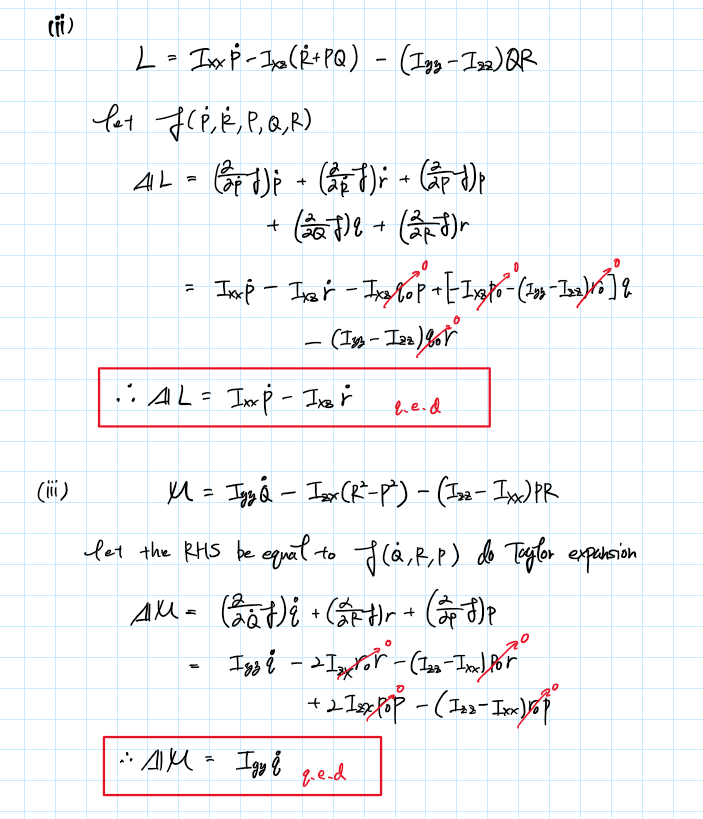 (ii)
L = Ixx ṗ - Ixz(Ṙ+PQ) - (Iyy - Izz)QR
let f(Ṗ, Ṙ, P, Q, R)
ΔL = (∂/∂Ṗ f)ṗ + (∂/∂Ṙ f)ṙ + (∂/∂P f)p
+ (∂/∂Q f)q + (∂/∂R f)r
= Ixx ṗ - Ixz ṙ - Ixz q₀ p 0 + [-Ixz p₀ 0 - (Iyy - Izz) r₀ 0] q
- (Iyy - Izz) q₀ r 0
∴ ΔL = Ixx ṗ - Ixz ṙ q.e.d
(iii) M = Iyy Q̇ - Izx(R² - P²) - (Izz - Ixx)PR
let the RHS be equal to f(Q̇, R, P) do Taylor expansion
ΔM = (∂/∂Q̇ f)q̇ + (∂/∂R f)r + (∂/∂P f)p
= Iyy q̇ - 2Izx r₀ r 0 - (Izz - Ixx) p₀ r 0
+ 2Izx p₀ p 0 - (Izz - Ixx) r₀ p 0
∴ ΔM = Iyy q̇ q.e.d